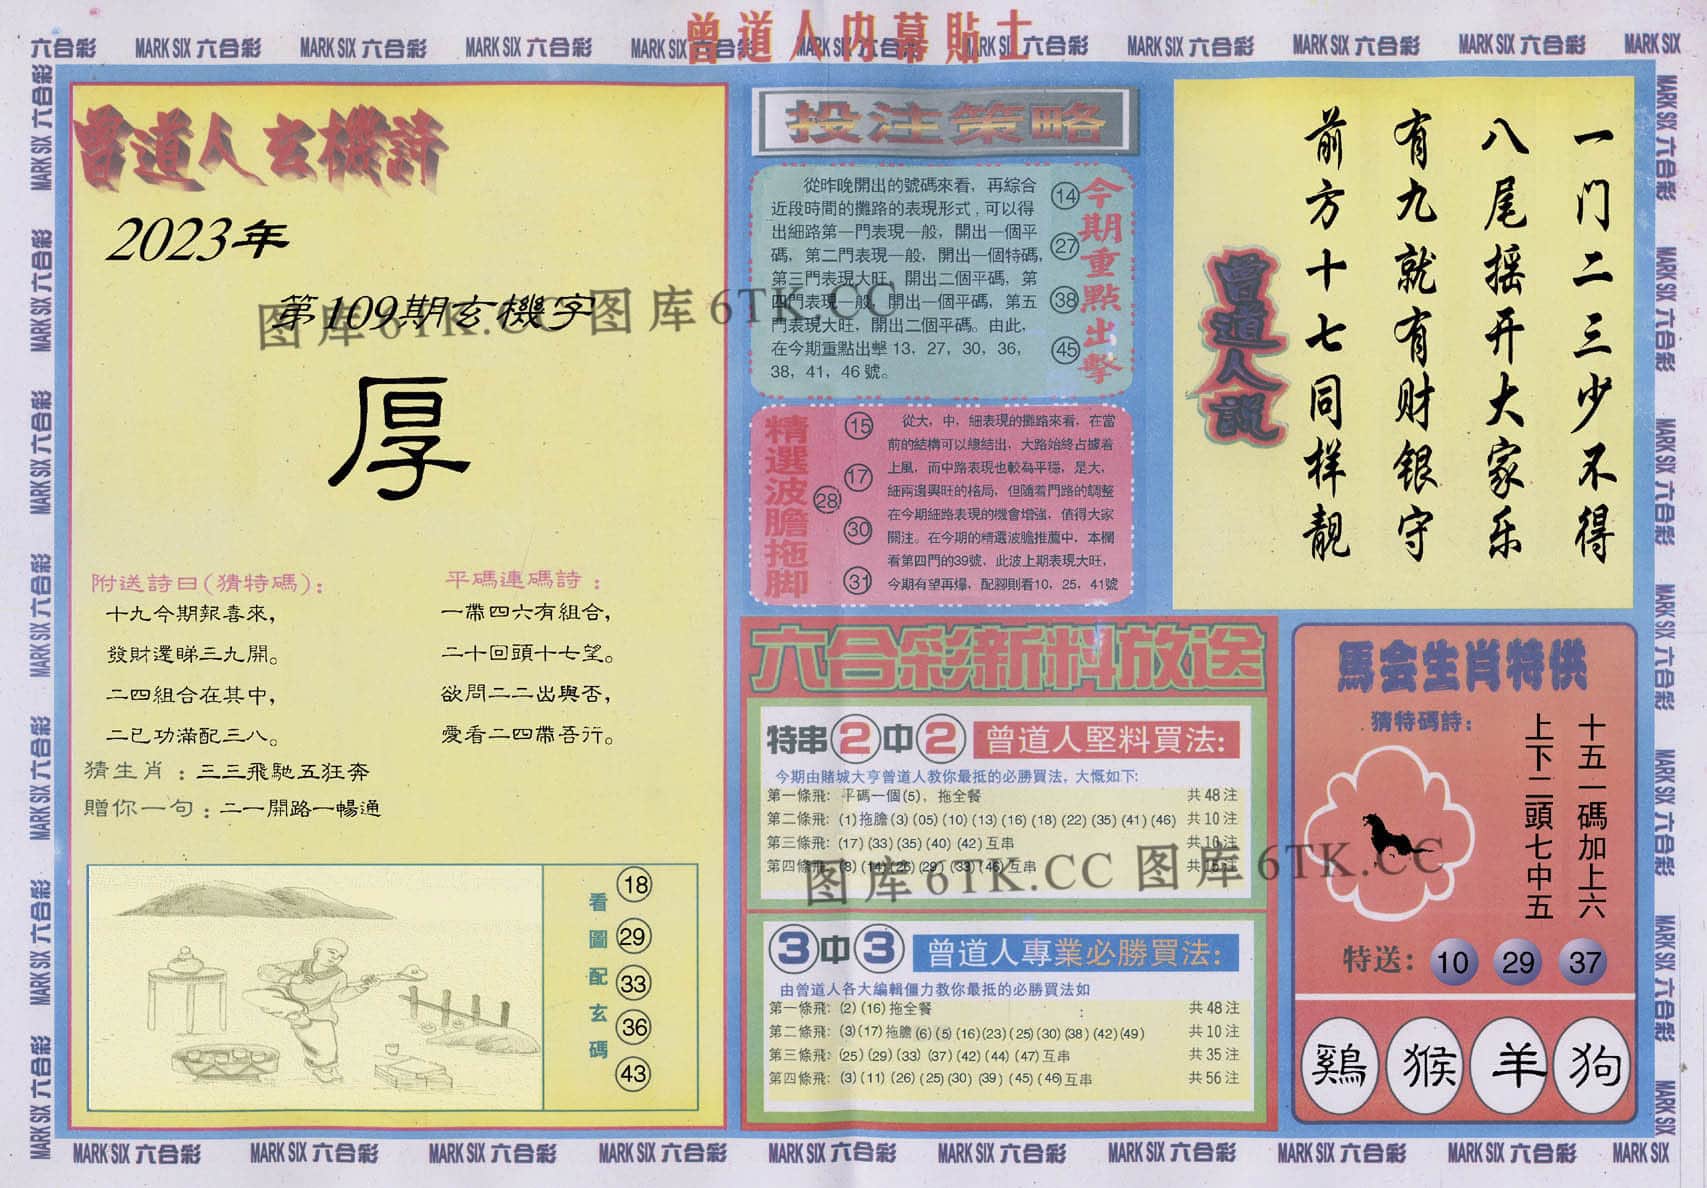 曾道人内幕貼士
六合彩 MARK SIX 六合彩 MARK SIX 六合彩 MARK SIX 六合彩 MARK SIX 六合彩 MARK SIX 六合彩 MARK SIX 六合彩 MARK SIX 六合彩 MARK SIX 六合彩 MARK SIX 六合彩 MARK SIX
曾道人玄機詩
2023年
第109期玄機字
厚
附送詩曰(猜特碼):
十九今期報喜來,
發財還睇三九開。
二四組合在其中,
二已功滿配三八。
平碼連碼詩:
一帶四六有組合,
二十回頭十七望。
欲問二二出與否,
愛看二四帶吾行。
猜生肖:三三飛馳五狂奔
贈你一句:二一開路一暢通
看圖配玄碼
18
29
33
36
43
投注策略
從昨晚開出的號碼來看，再綜合
近段時間的攤路的表現形式,可以得
出細路第一門表現一般，開出一個平
碼，第二門表現一般，開出一個特碼,
第三門表現大旺，開出二個平碼，第
四門表現一般，開出一個平碼，第五
門表現大旺，開出二個平碼。由此，
在今期重點出擊 13，27，30，36，
38，41，46 號。
14
27
38
45
今期重點出擊
精選波膽拖脚
15
17
28
30
31
從大，中，細表現的攤路來看，在當
前的結構可以總結出，大路始終占據着
上風，而中路表現也較為平穩，是大，
細兩邊興旺的格局，但隨着門路的調整
在今期細路表現的機會增強，值得大家
關注。在今期的精選波膽推薦中，本欄
看第四門的39號，此波上期表現大旺，
今期有望再爆，配腳則看10，25，41號
一门二三少不得
八尾摇开大家乐
有九就有财银守
前方十七同样靚
曾道人說
六合彩新料放送
特串2中2 曾道人堅料買法:
今期由賭城大亨曾道人教你最抵的必勝買法，大慨如下:
第一條飛: 平碼一個(5)，拖全餐 共48注
第二條飛: (1)拖膽(3)(05)(10)(13)(16)(18)(22)(35)(41)(46) 共10注
第三條飛: (17)(33)(35)(40)(42)互串 共10注
第四條飛: (8)(14)(26)(29)(33)(46)互串 共15注
3中3 曾道人專業必勝買法:
由曾道人各大編輯僵力教你最抵的必勝買法如
第一條飛: (2)(16)拖全餐 共48注
第二條飛: (3)(17)拖膽(6)(5)(16)(23)(25)(30)(38)(42)(49) 共10注
第三條飛: (25)(29)(33)(37)(42)(44)(47)互串 共35注
第四條飛: (3)(11)(26)(25)(30)(39)(45)(46)互串 共56注
馬会生肖特供
猜特碼詩:
十五一碼加上六
上下二頭七中五
特送: 10 29 37
鷄 猴 羊 狗
图库6TK.CC 图库6TK.CC
图库6TK.CC 图库6TK.CC
MARK SIX 六合彩 MARK SIX 六合彩 MARK SIX 六合彩 MARK SIX 六合彩 MARK SIX 六合彩 MARK SIX 六合彩 MARK SIX 六合彩 MARK SIX 六合彩 MARK SIX 六合彩 MARK SIX